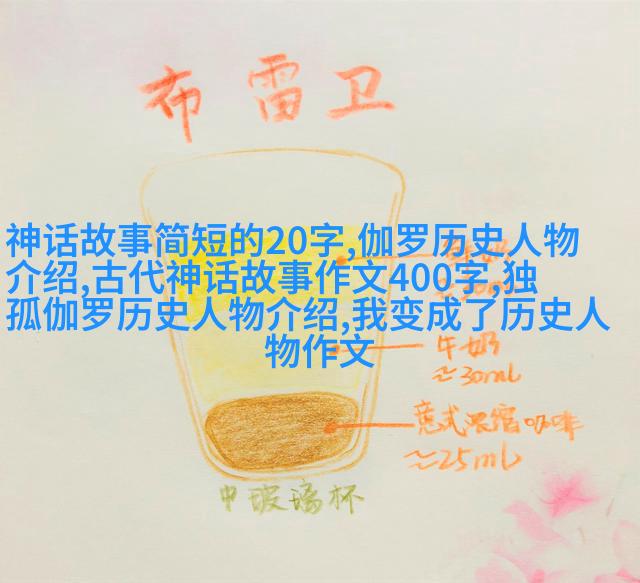 布雷卫
神话故事简短的20字,伽罗历史人物
介绍,古代神话故事作文400字,独
孤伽罗历史人物介绍,我变成了历史人
物作文
牛奶
≈30ml
意式浓缩咖啡
≈25ml
中玻璃杯